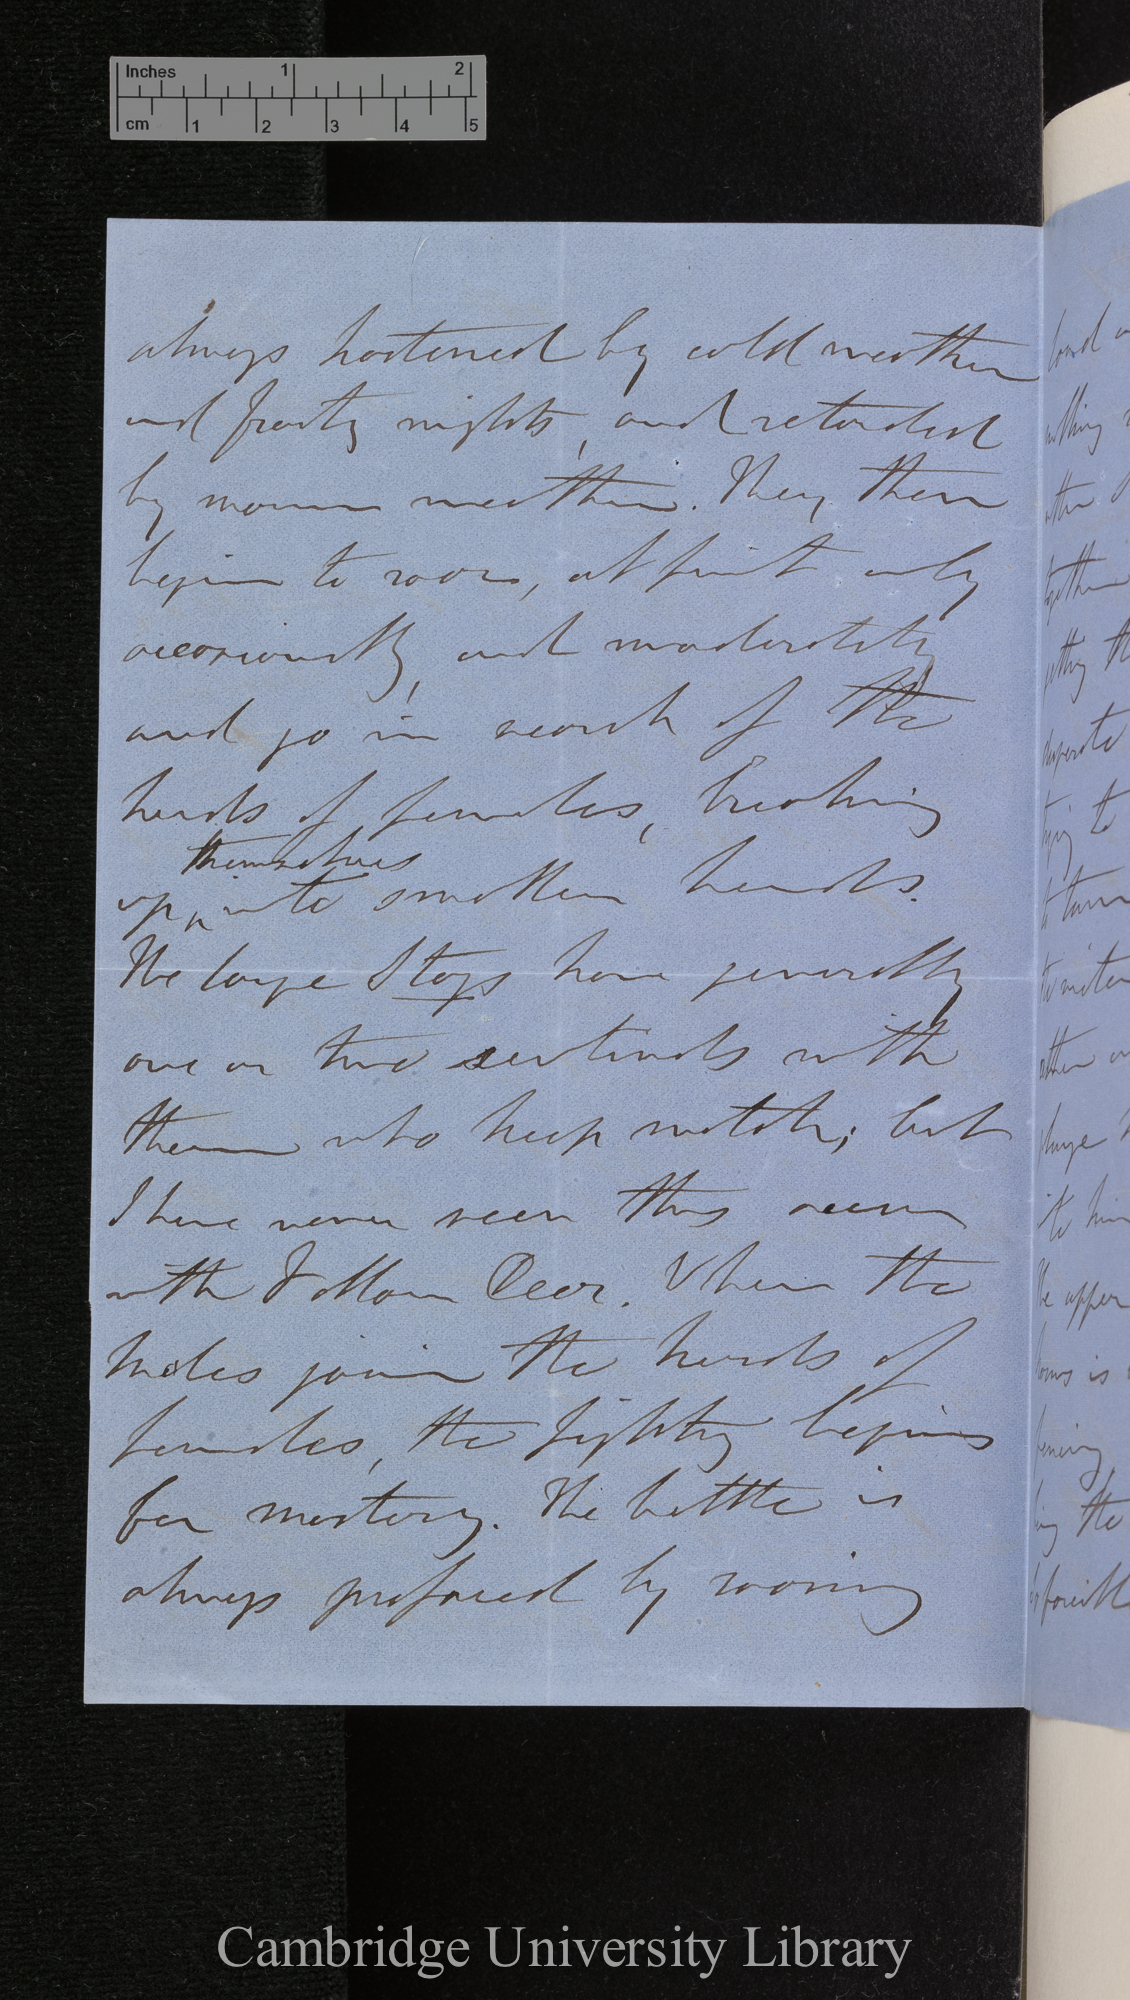 Inches 1 2
cm 1 2 3 4 5
always hastened by cold weather
and frosty nights, and retarded
by warm weather. They then
begin to roar, at first only
occasionally, and moderately
and go in search of the
herds of females, breaking
themselves
up ^ into smaller herds.
The large Stags have generally
one or two sentinels with
them who keep watch; but
I have never seen this occur
with Fallow Deer. When the
Males join the herds of
females, the fighting begins
for mastery. The battle is
always prefaced by roaring
loud
nothing
other
together
getting th
desperate
trying to
to turn
other
charge
to him
The upper
horns is
fencing
the
forcibl
Cambridge University Library